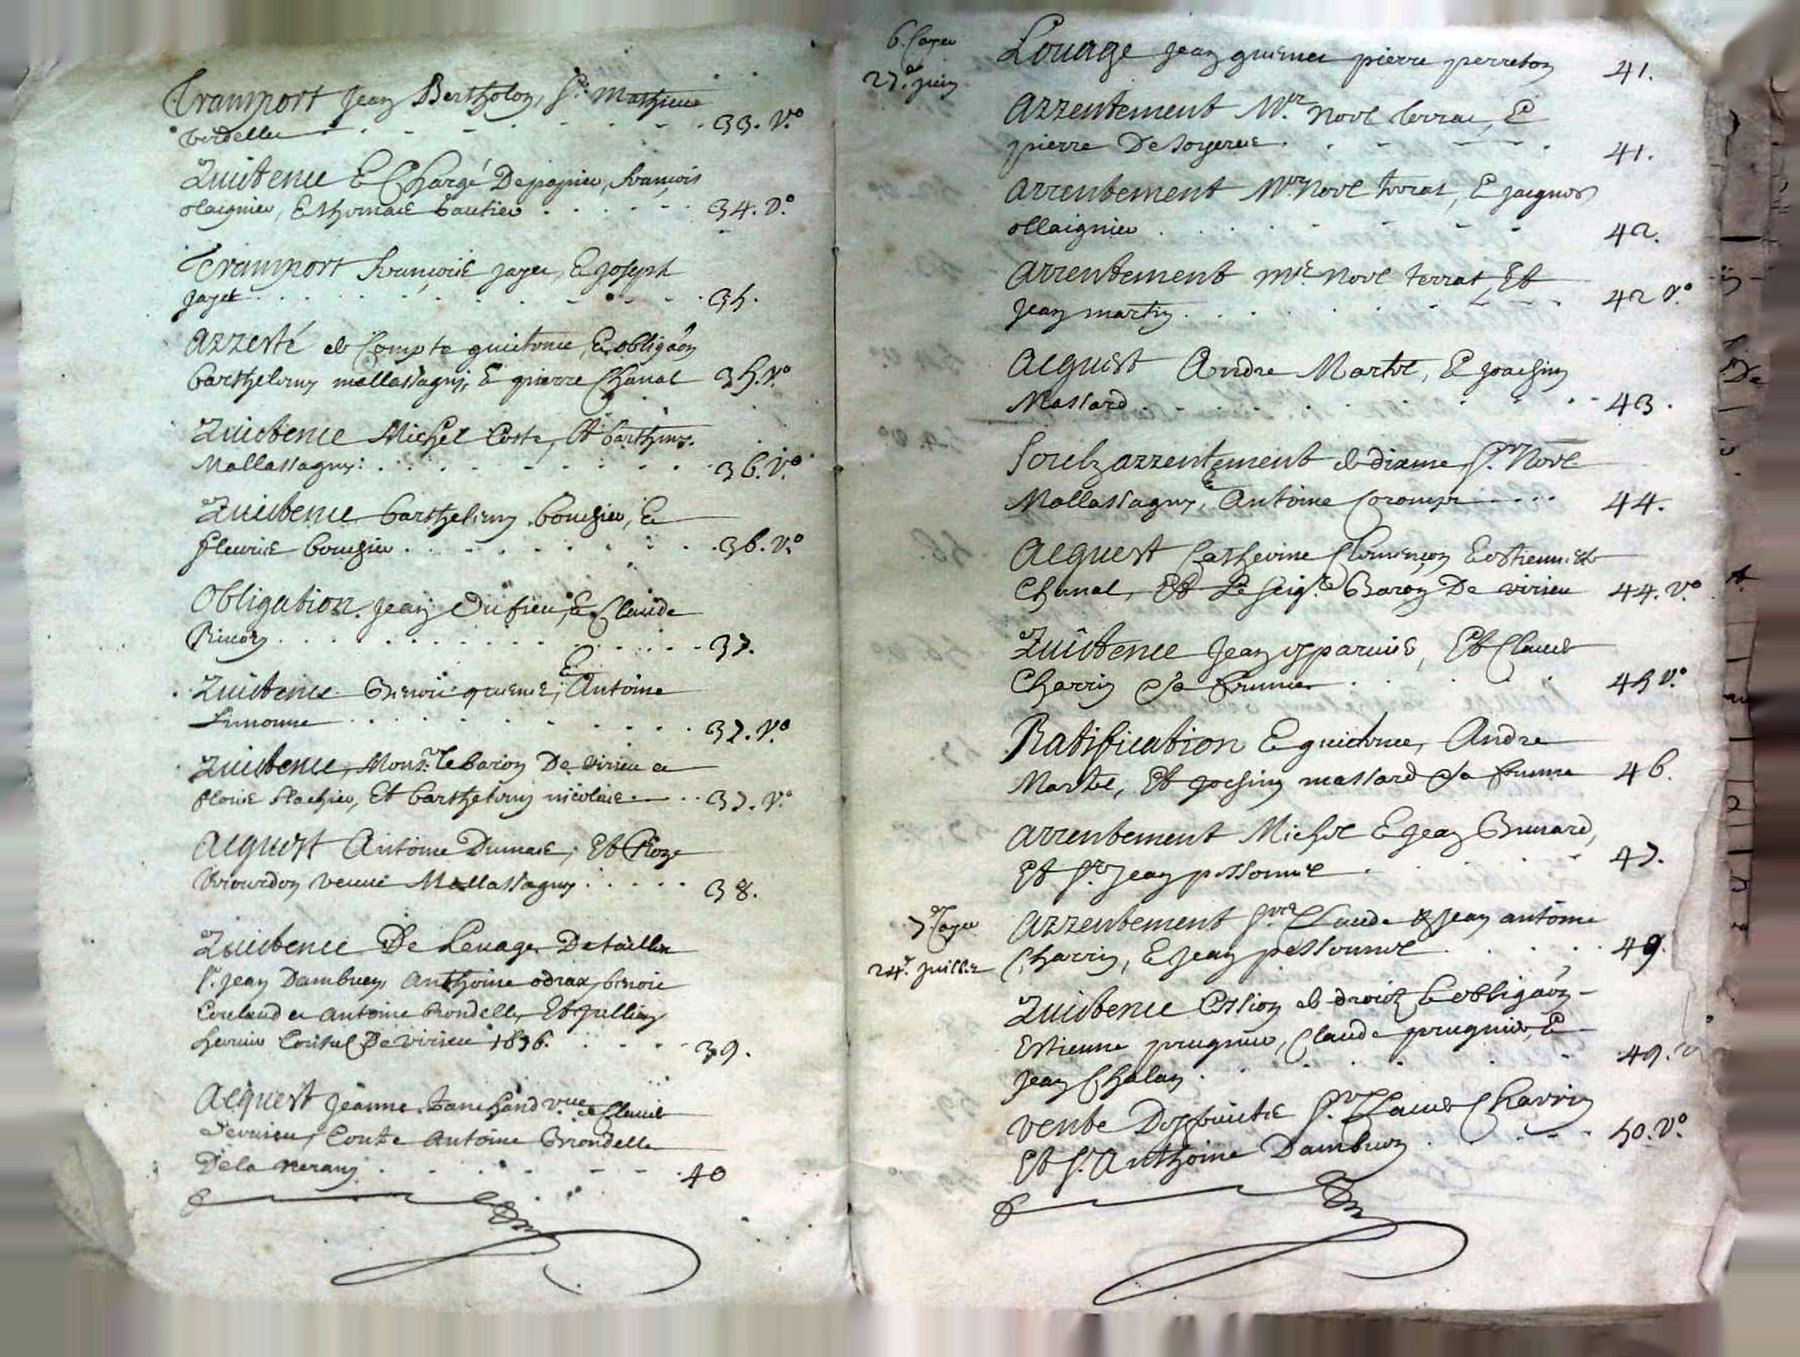 Transport Jean Bertholon, Sr. Mathieu
Verdellet 33. Vo.
Quictence E Chargé De papier, francois
olaignier, E thomas Gautier 34. Vo.
Transport francoise jayet, E joseph
jayet 35.
Arresté de Compte quictence, E obligaon
barthelemy mallassagny, E pierre Chanal 35. Vo.
Quictence Michel Coste, Et barthmy.
Mallassagny. 36. Vo.
Quictence barthelemy bouchier, E
fleurie bouchier 36. Vo.
Obligation Jean Dufieu, E Claude
Rivory 37.
Quictence Benoit E Antoine
Limonne 37. Vo.
Quictence, Monsr. le baron De virieu
Et barthelemy nicolas 37. Vo.
Acquest Antoine Dumas, Et Roze
veuve Mallassagny 38.
Quictence De Levage De tailles
Sr. Jean Dambuen, Anthoine odrax, benoit
Antoine Brondelle, Et jullien
Consul De virieu 1696. 39.
Acquest Jeanne vve. de Claude
Contre Antoine Brondelle
De la 40
6e. Cayer
27e. juin
Louage Jean pierre perreton 41.
Arrentement Mr. Noel terrat, E
pierre De soyeres 41.
Arrentement Mr. Noel terrat, E jacques
ollaignier 42.
Arrentement Mr. Noel terrat, Et
Jean martin 42 Vo.
Acquest Andre Martel, E joachin
Massard 43.
Soubz arrentement de dixme, Sr. Noel
Mallassagny, E Antoine Corompt 44.
Acquest Catherine Clemençon Estienne
Chanal, Et Le seigr. Baron De virieu 44. Vo.
Quictence Jean Et Claude
Charrin Sa femme 45 Vo.
Ratification E quictence, Andre
Martel, Et jochin massard Sa femme 46.
Arrentement Michel E Jean Brunard,
Et Sr. Jean possonnel 47.
7e Cayer
24e. juillet
Arrentement Srs. Claude E Jean antoine
Charrin, E Jean possonnel 49.
Quictence Cession de droict E obligaon
Estienne prugnier, Claude prugnier, E
Jean Chalan 49. Vo
Vente Sr. Claude Charrin
Et Sr. Anthoine Dambuen 50. Vo.